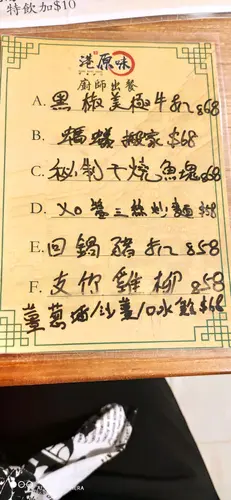 特飲加$10
港原味
廚師出餐
A. 黑椒美極牛扒$68
B. 螞蟻搬家$68
C. 秘制干燒魚塊$68
D. XO醬三絲炒麵$58
E. 回鍋豬扒$58
F. 支竹雞柳$58
薑蔥油/沙薑/口水雞$68